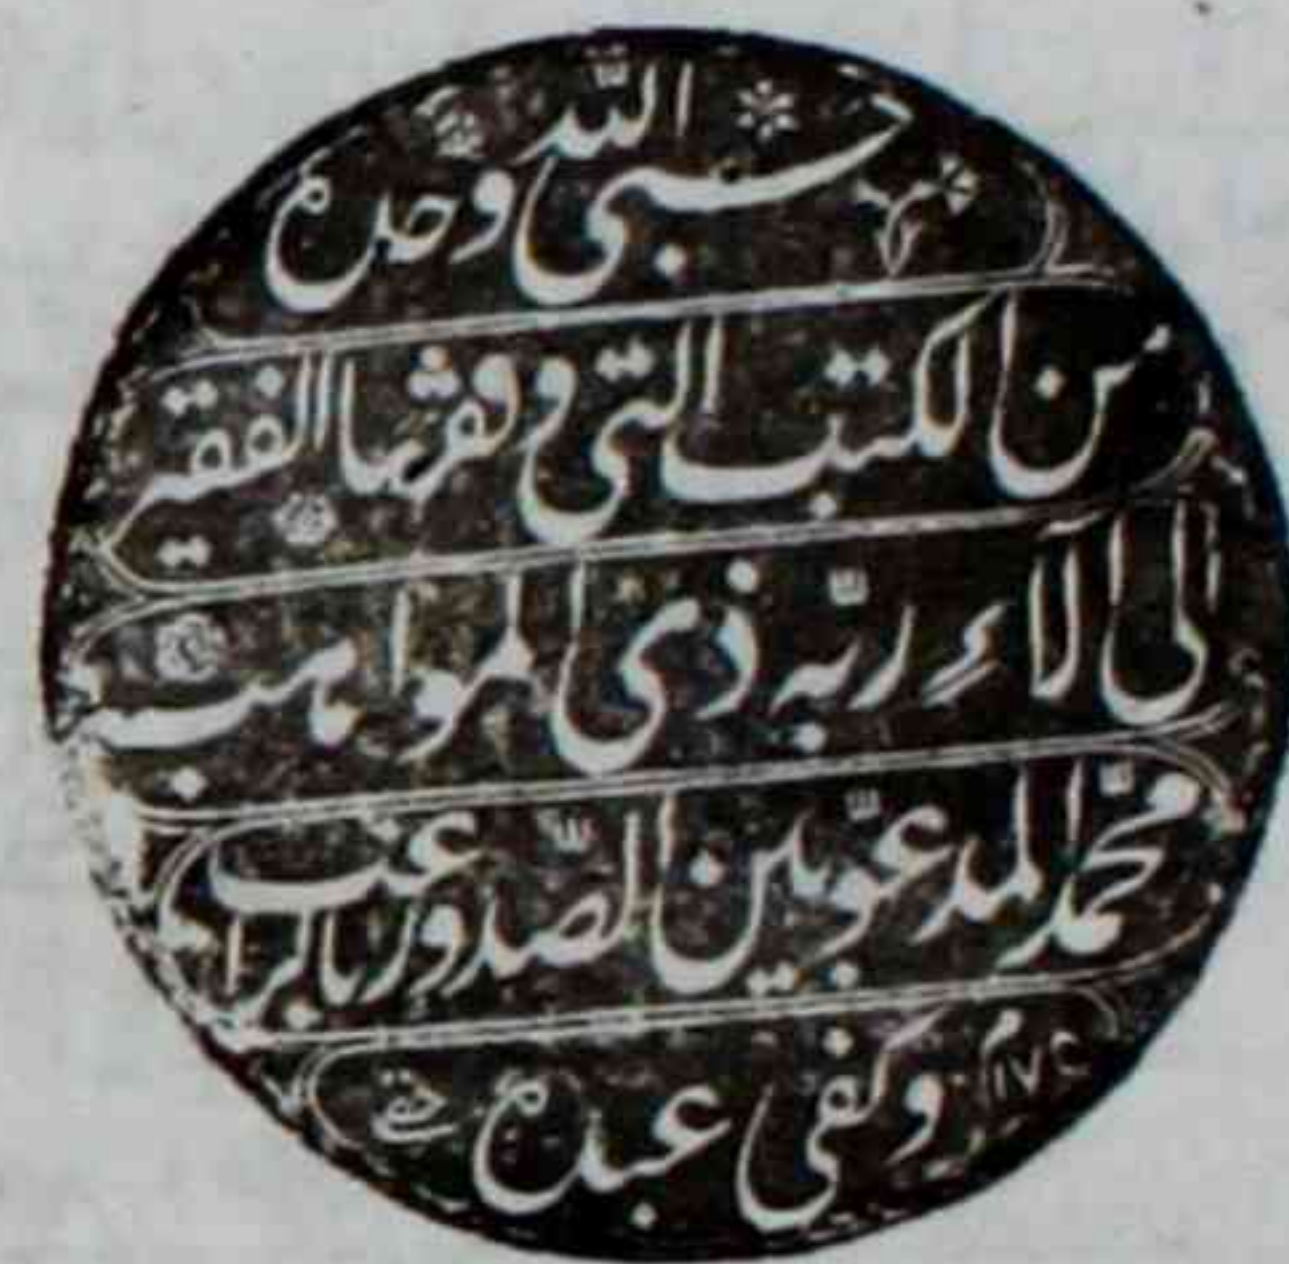 حسبی الله وحده
من الکتب التی وقفها الفقیر
الی آلاء ربّه ذی المواهب
محمّد المدعوّ بین الصّدور بالراغب
وکفی عبده